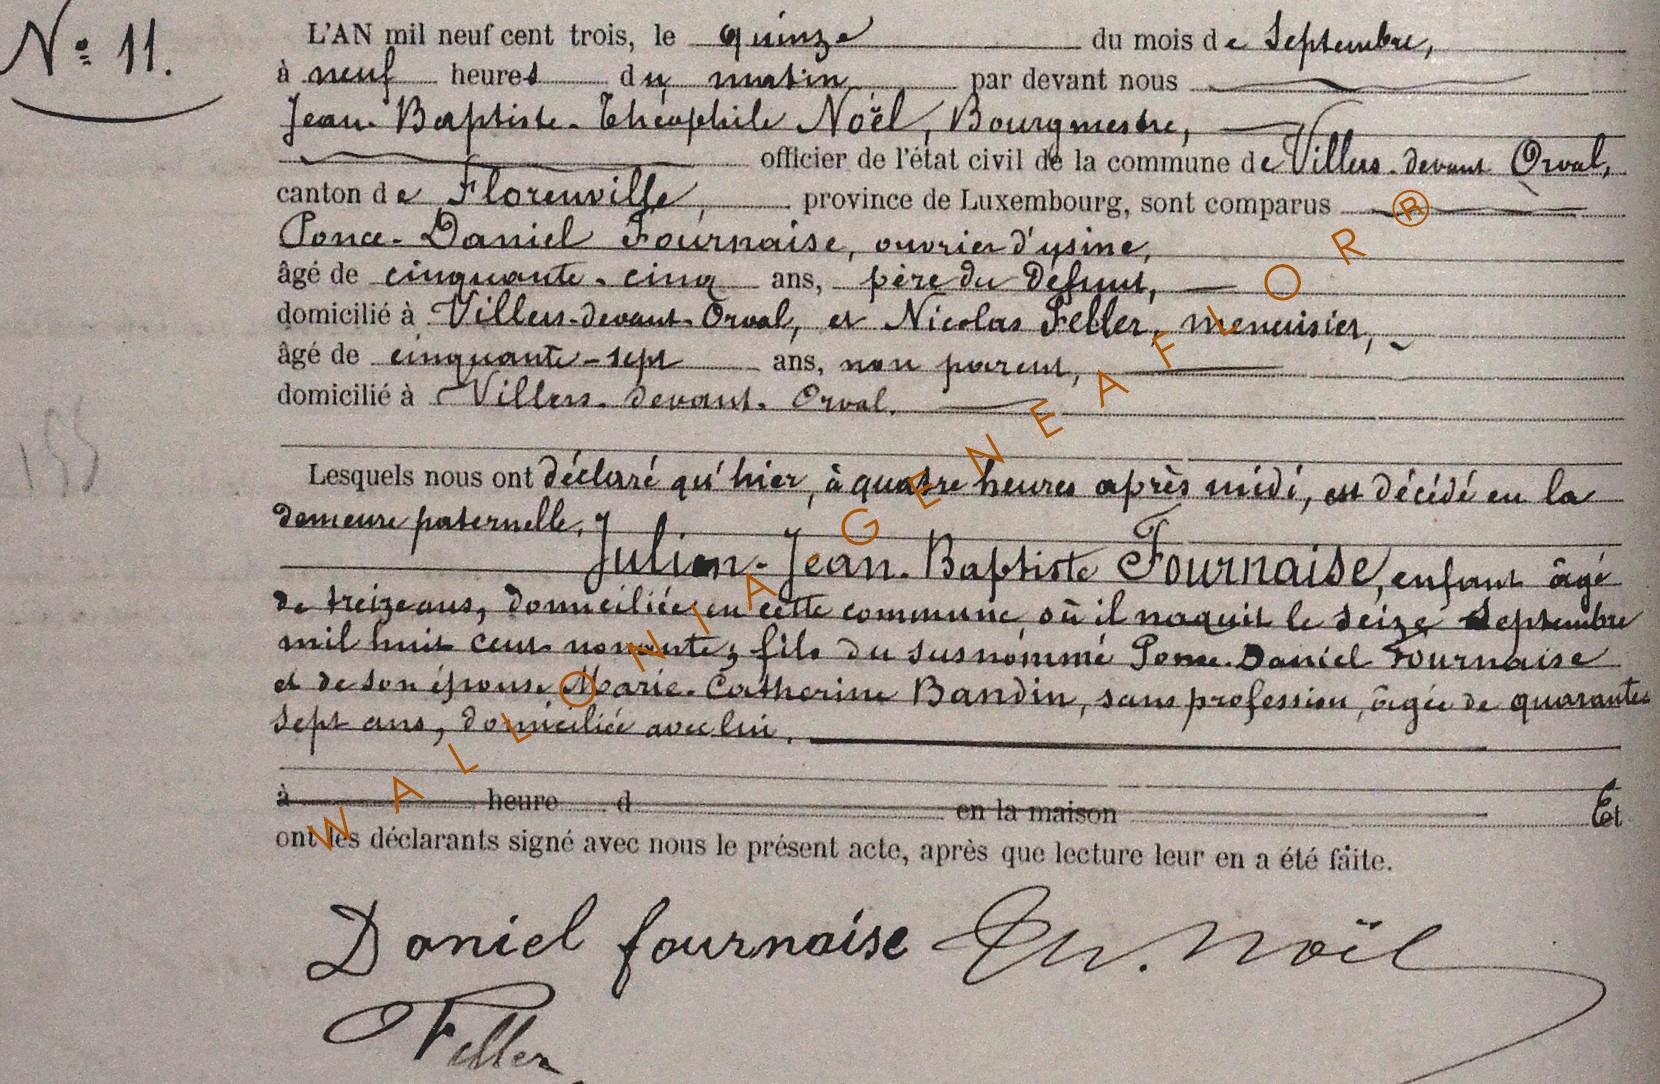 Nº 11.
L'AN mil neuf cent trois, le quinze du mois de Septembre,
à neuf heures du matin par devant nous
Jean-Baptiste-Théophile Noël, Bourgmestre,
officier de l'état civil de la commune de Villers-devant Orval,
canton de Florenville, province de Luxembourg, sont comparus
Ponce-Daniel Fournaise, ouvrier d'usine,
âgé de cinquante-cinq ans, père du défunt,
domicilié à Villers-devant-Orval, et Nicolas Feller, menuisier,
âgé de cinquante-sept ans, non parent,
domicilié à Villers-devant-Orval.
155
Lesquels nous ont déclaré qu'hier, à quatre heures après midi, est décédé en la
demeure paternelle,
Julien-Jean-Baptiste Fournaise, enfant âgé
de treize ans, domiciliée en cette commune, où il naquit le seize Septembre
mil huit cent nonante; fils du susnommé Ponce-Daniel Fournaise
et de son épouse Marie-Catherine Bandin, sans profession, âgée de quarante
sept ans, domiciliée avec lui.
à heure d en la maison Et
ont les déclarants signé avec nous le présent acte, après que lecture leur en a été faite.
Daniel fournaise Th. Noël
Feller
WALLONIA-GENEAFLOR®